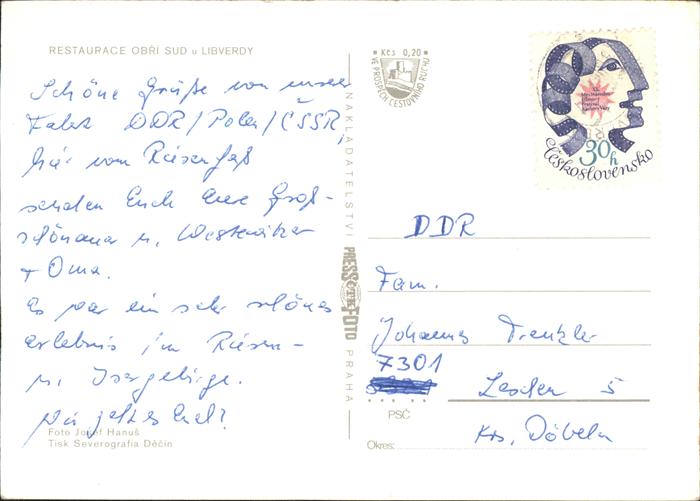 RESTAURACE OBŘÍ SUD u LIBVERDY
Schöne Grüße von unserer
Fahrt DDR/Polen/ČSSR,
hier vom Riesenfaß
senden Euch Eure Groß-
schönauer u.
+ Oma.
Es war ein sehr schönes
Erlebnis im Riesen-
u. Isergebirge.
Wie geht es Euch?
Foto Josef Hanuš
Tisk Severografia Děčín
NAKLADATELSTVÍ PRESSFOTO PRAHA
Kčs 0,20
VE PROSPĚCH CESTOVNÍHO RUCHU
30h
Československo
DDR
Fam.
Johannes
7301
5
Krs. Döbeln
PSČ
Okres: